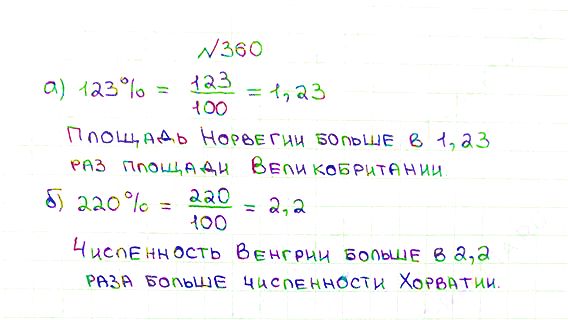 №360
а) 123% = 123/100 = 1,23
Площадь Норвегии больше в 1,23
раз площади Великобритании.
б) 220% = 220/100 = 2,2
Численность Венгрии больше в 2,2
раза больше численности Хорватии.